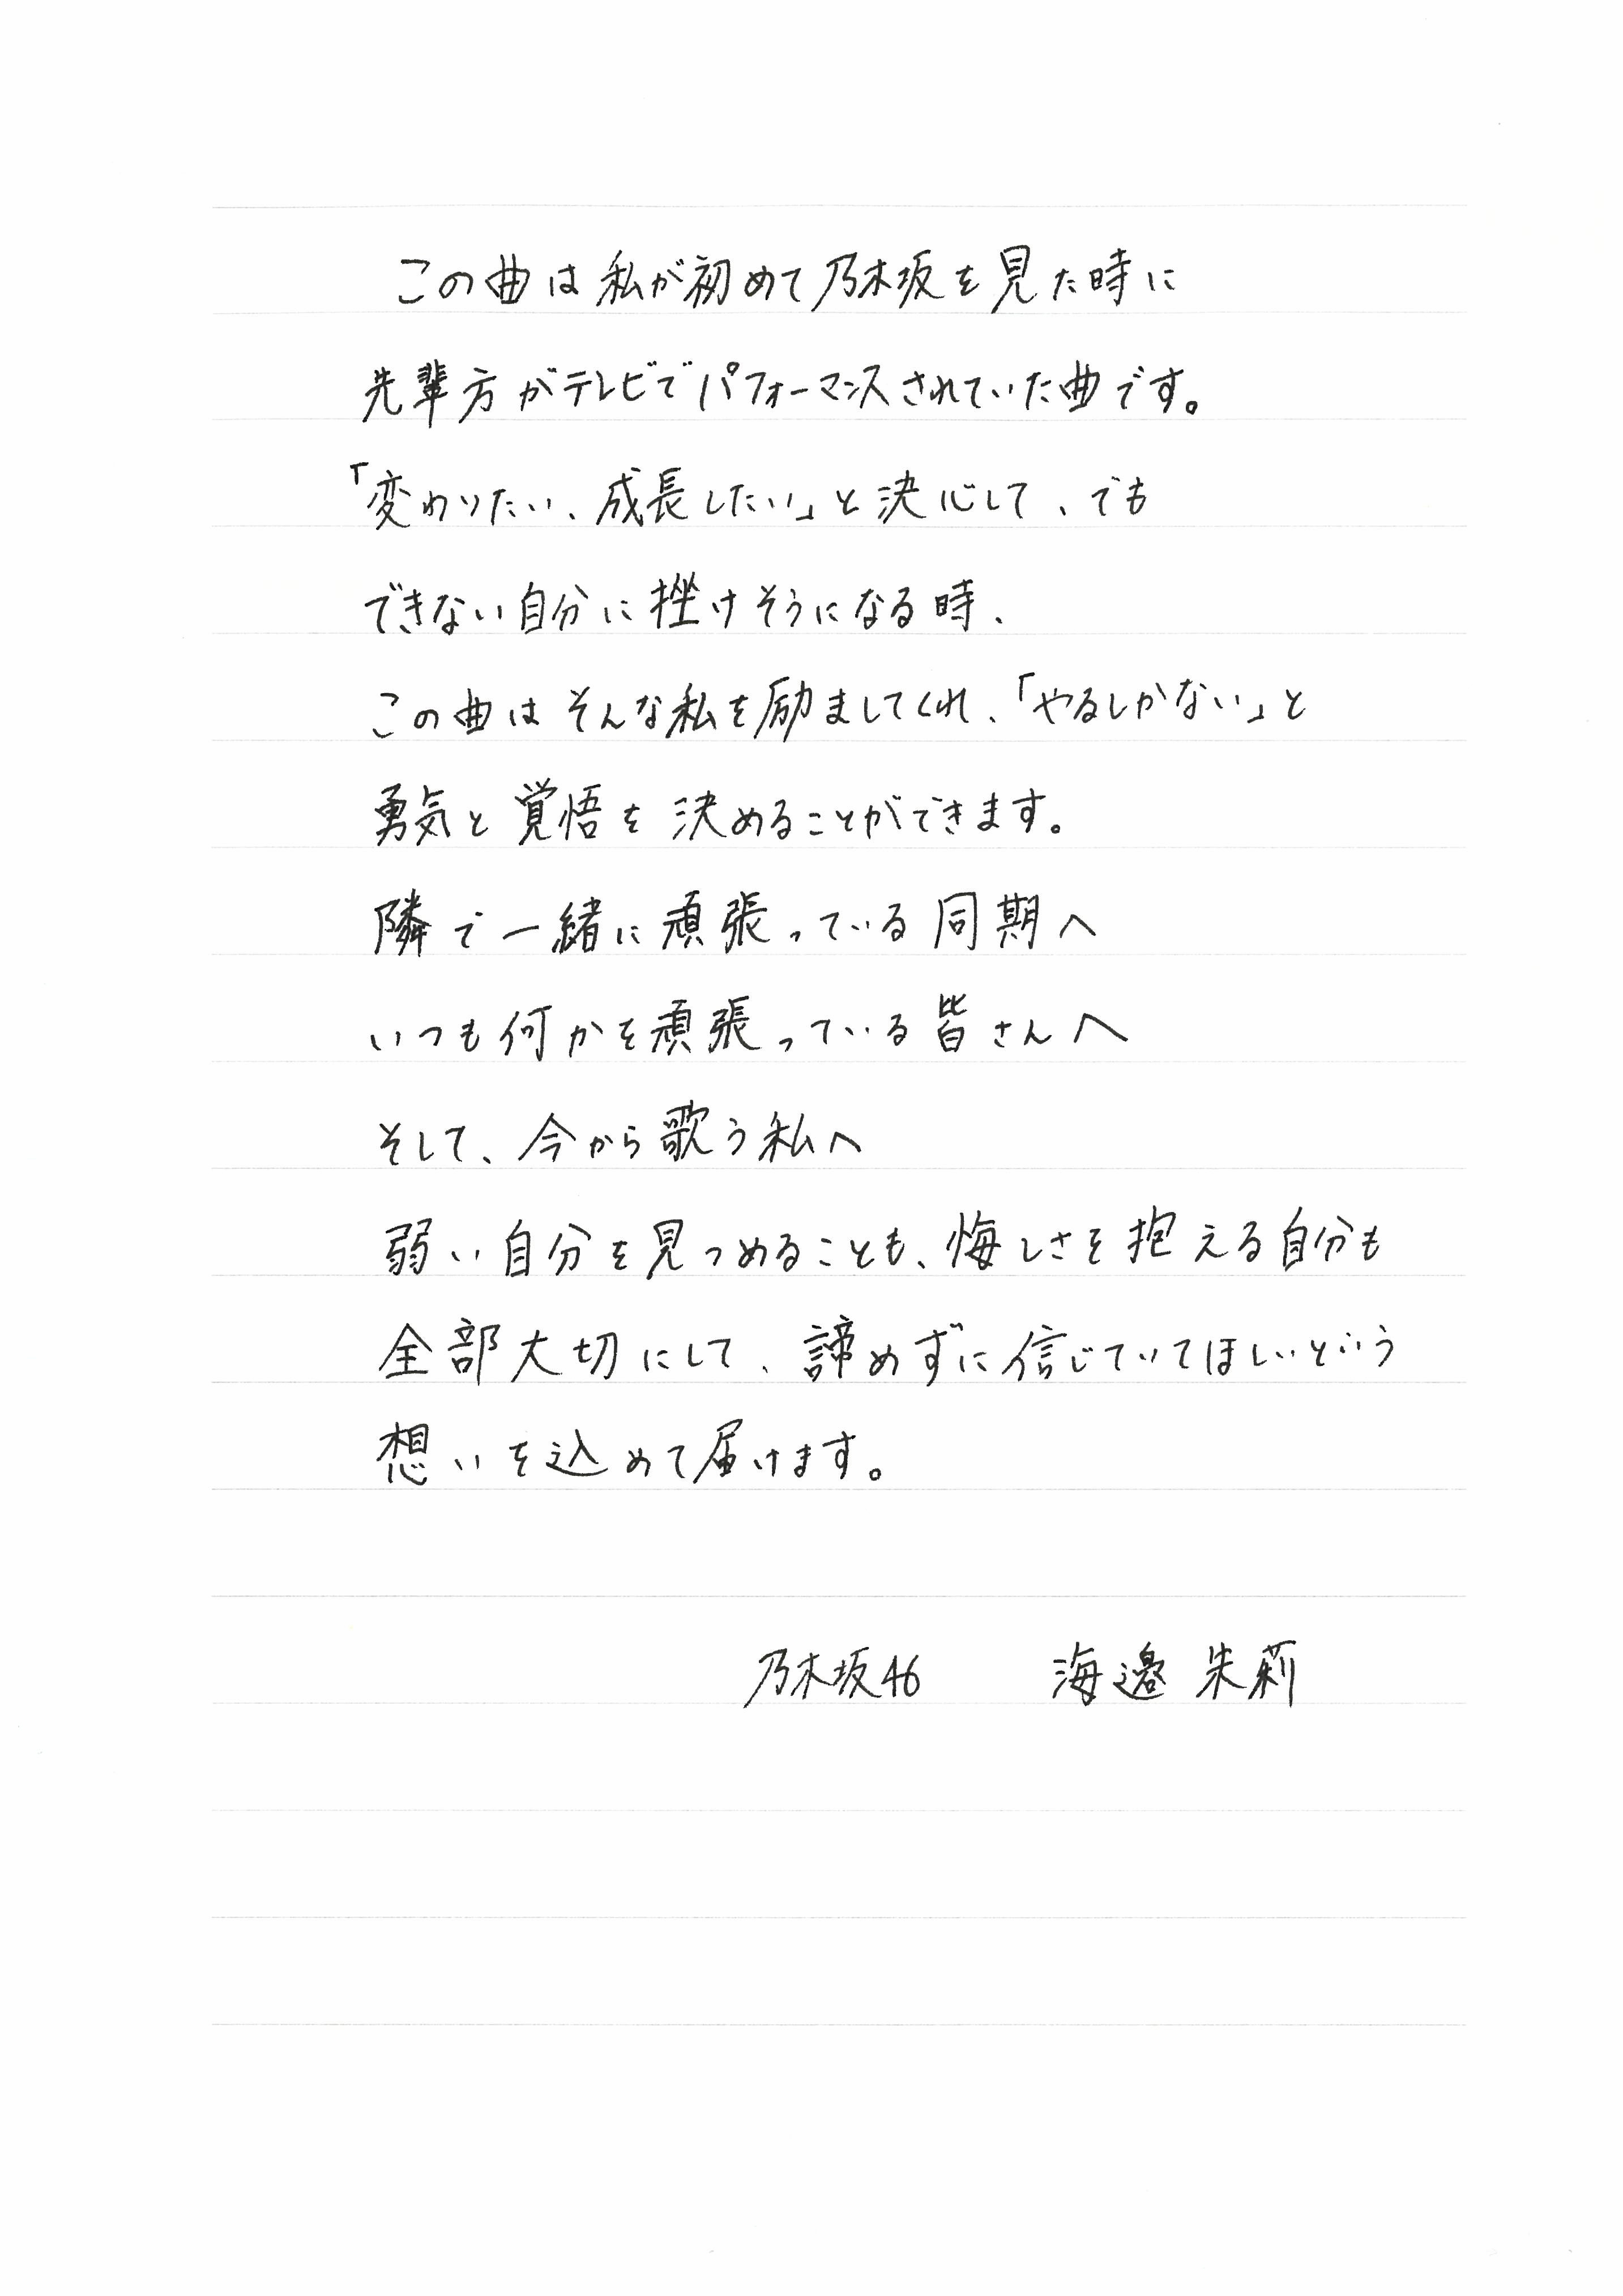 この曲は私が初めて乃木坂を見た時に
先輩方がテレビでパフォーマンスされていた曲です。
「変わりたい、成長したい」と決心して、でも
できない自分に挫けそうになる時、
この曲はそんな私を励ましてくれ、「やるしかない」と
勇気と覚悟を決めることができます。
隣で一緒に頑張っている同期へ
いつも何かを頑張っている皆さんへ
そして、今から歌う私へ
弱い自分を見つめることも、悔しさを抱える自分も
全部大切にして、諦めずに信じていてほしいという
想いを込めて届けます。
乃木坂46 海邉 朱莉